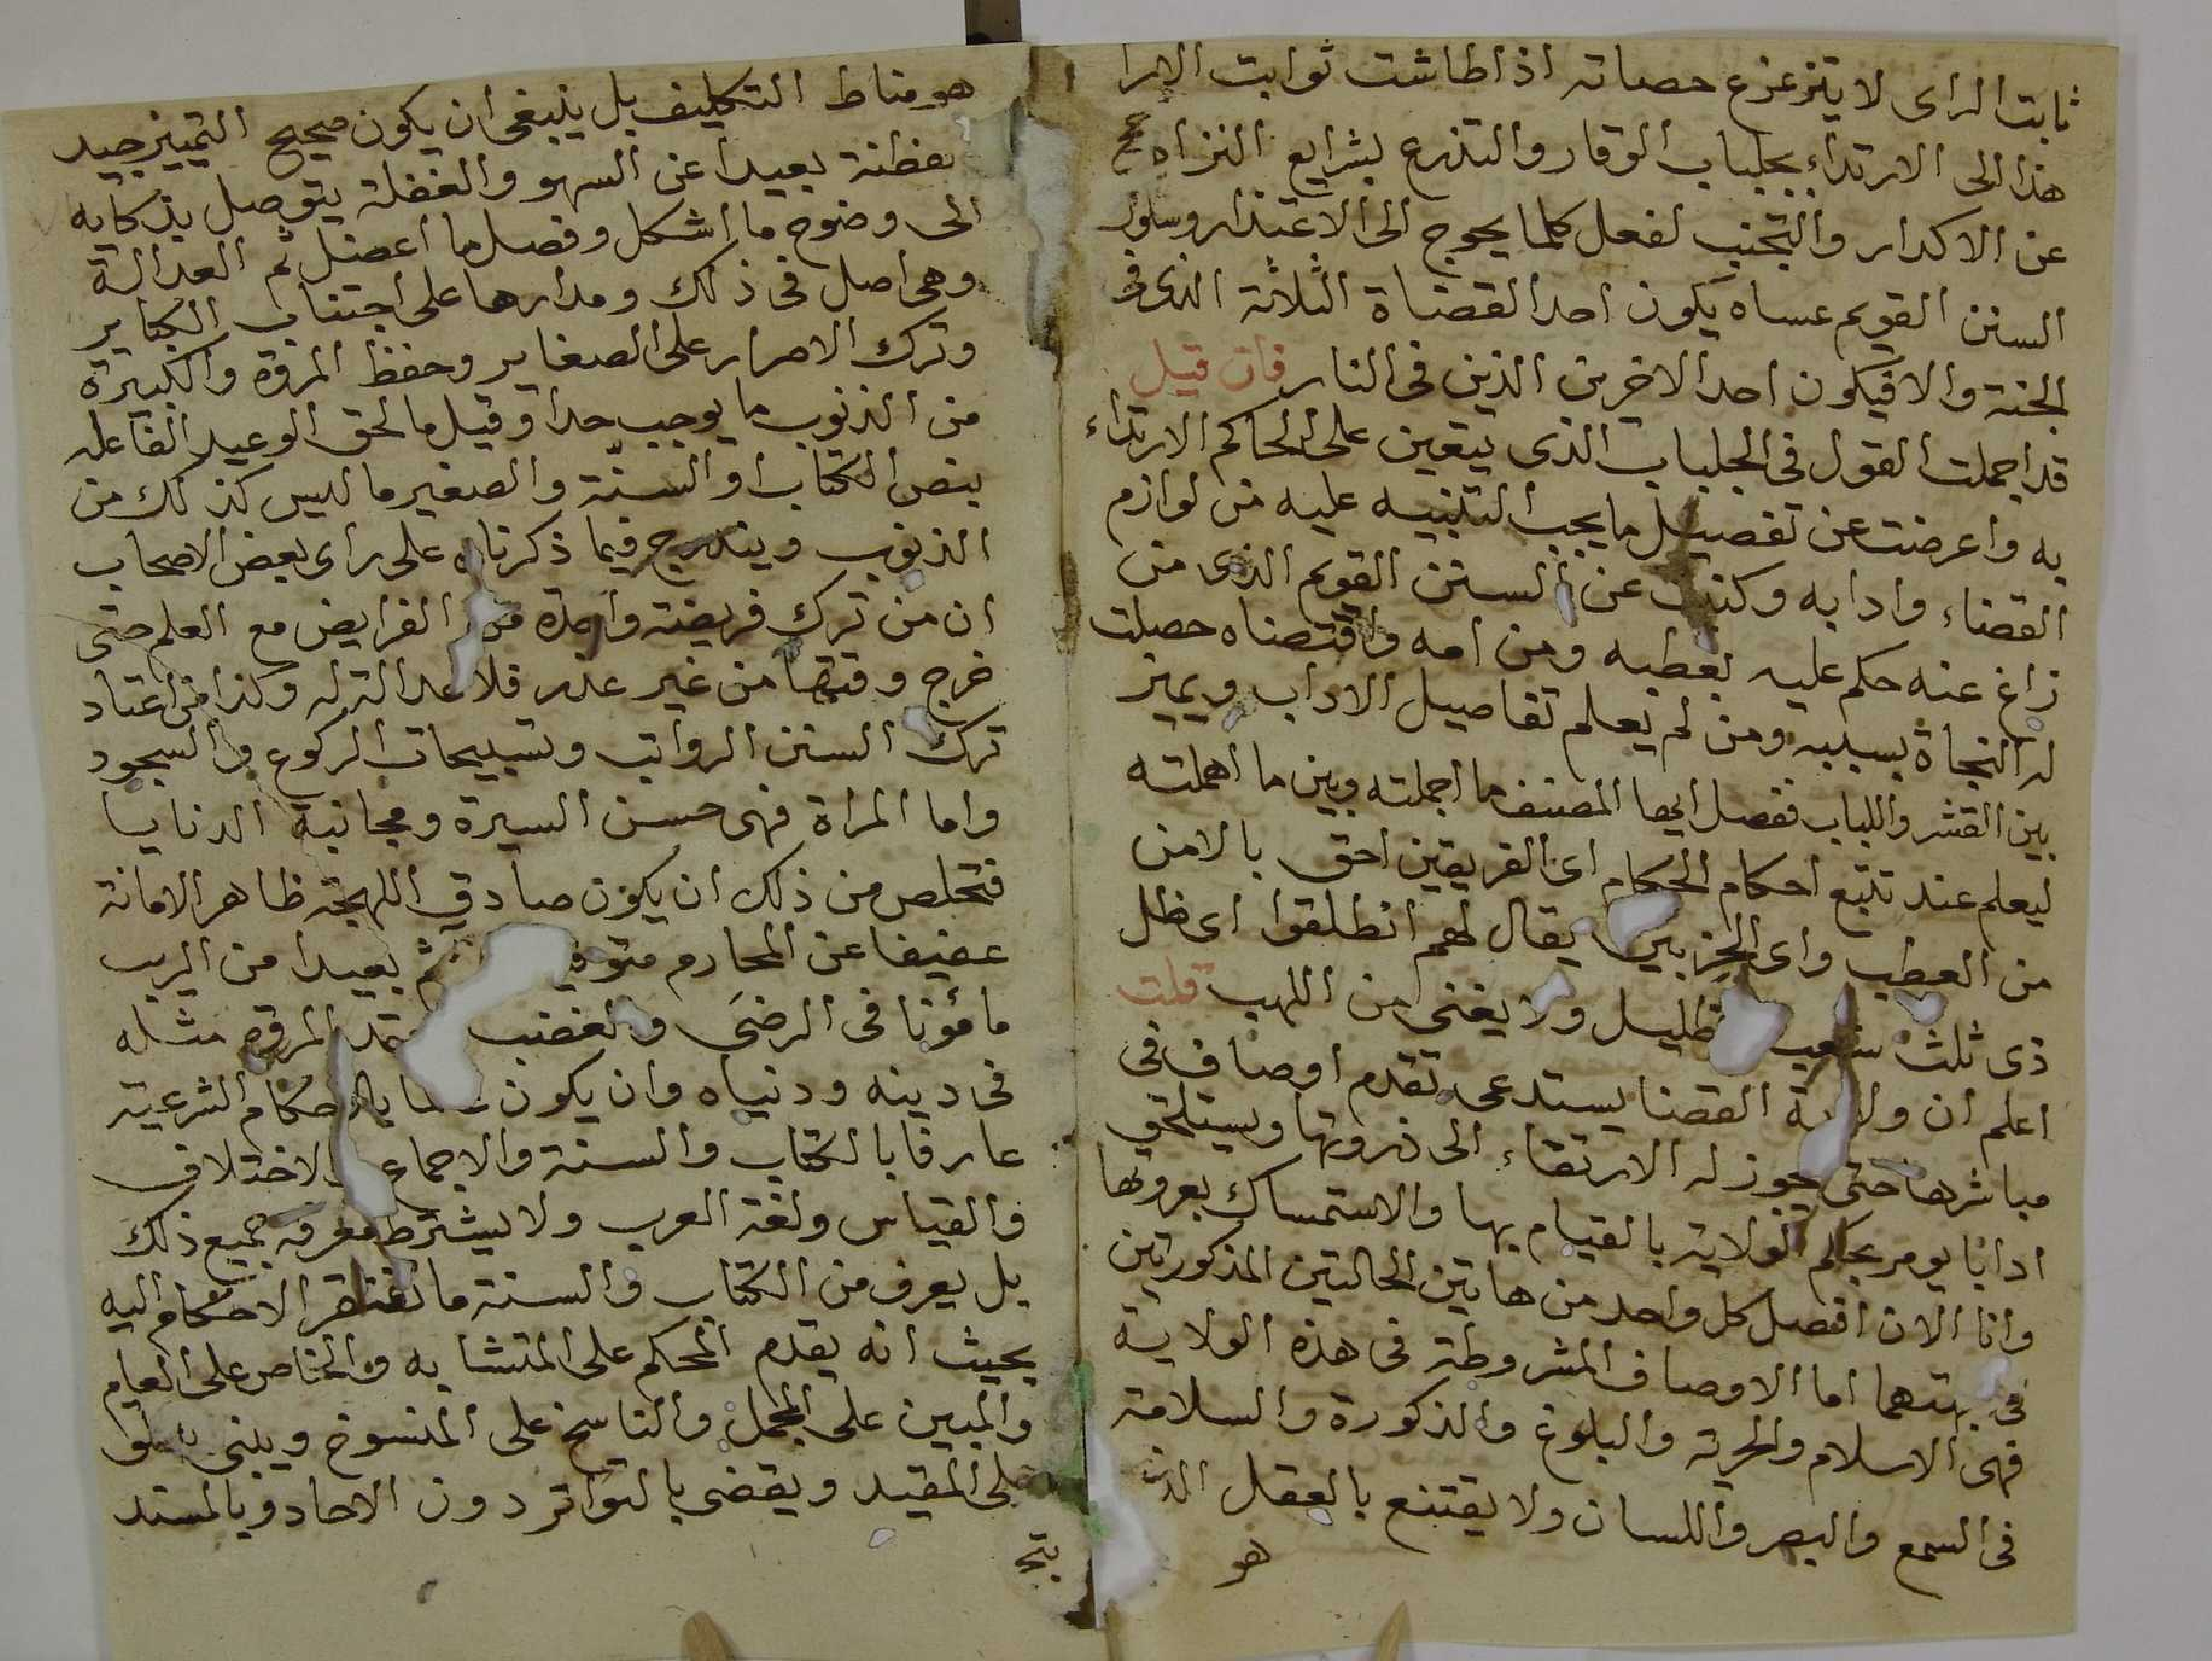 ثابت الراى لا يتزعزع حصاته اذا طاشت ثوابت الارا
هذا الى الارتداء بجلباب الوقار والتذرع بشرايع النزاهة
عن الاكدار والتجنب لفعل كلما يحوج الى الاعتذار وسلوك
السنن القويم عساه يكون احد القضاة الثلاثة الذى فى
الجنة والا فيكون احد الاخرين الذين فى النار فان قيل
قد اجملت القول فى الجلباب الذى يتعين على الحاكم الارتداء
به واعرضت عن تفصيل ما يجب التنبيه عليه من لوازم
القضاء وادابه وكنيت عن السنن القويم الذى من
زاغ عنه حكم عليه بعطبه ومن امه واقتصناه حصلت
له النجاة بسببه ومن لم يعلم تفاصيل الاداب ويميز
بين القشر واللباب ففصل ايها المصنف ما اجملته وبين ما اهملته
ليعلم عند تتبع احكام الحكام اى الفريقين احق بالامن
من العطب واى الحزبين يقال لهم انطلقوا اى ظل
ذى ثلث شعب ظليل ولا يغنى من اللهب قلت
اعلم ان ولاية القضا يستدعى تقدم اوصاف فى
مباشرها حتى يجوز له الارتقاء الى ذروتها ويستلحق
ادابا يومر بحكم الولاية بالقيام بها والاستمساك بعروتها
وانا الان افصل كل واحد من هاتين الحالتين المذكورتين
فى اما الاوصاف المشروطة فى هذه الولاية
فهى الاسلام والحرية والبلوغ والذكورة والسلامة
فى السمع والبصر واللسان ولا يقتنع بالعقل الذى
هو
هو مناط التكليف بل ينبغى ان يكون صحيح التمييز جيد
الفطنة بعيدا عن السهو والغفلة يتوصل بذكايه
الى وضوح ما اشكل وفصل ما اعضل ثم العدالة
وهى اصل فى ذلك ومدارها على اجتناب الكباير
وترك الاصرار على الصغاير وحفظ المروة والكبيرة
من الذنوب ما يوجب حدا وقيل ما لحق الوعيد الفاعله
بنص الكتاب او السنة والصغير ما ليس كذلك من
الذنوب ويندرج فيما ذكرناه على راى بعض الاصحاب
ان من ترك فريضة واحدة من الفرايض مع العلم حتى
خرج وقتها من غير عذر فلا عدالة له وكذا من اعتاد
ترك السنن الرواتب وتسبيحات الركوع والسجود
واما المراة فهى حسن السيرة ومجانبة الدنايا
فتخلص من ذلك ان يكون صادق اللهجة ظاهر الامانة
عفيفا عن المحارم بعيدا من الريب
مأمونا فى الرضى والغضب المروة مثله
فى دينه ودنياه وان يكون بالاحكام الشرعية
عارفا بالكتاب والسنة والاجماع والاختلاف
والقياس ولغة العرب ولا يشترط معرفة جميع ذلك
بل يعرف من الكتاب والسنة ما تفتقر الاحكام اليه
بحيث انه يقدم المحكم على المتشابه والخاص على العام
والمبين على المجمل والناسخ على المنسوخ ويبنى
على المقيد ويقضى بالتواتر دون الاحاد وبالمسند